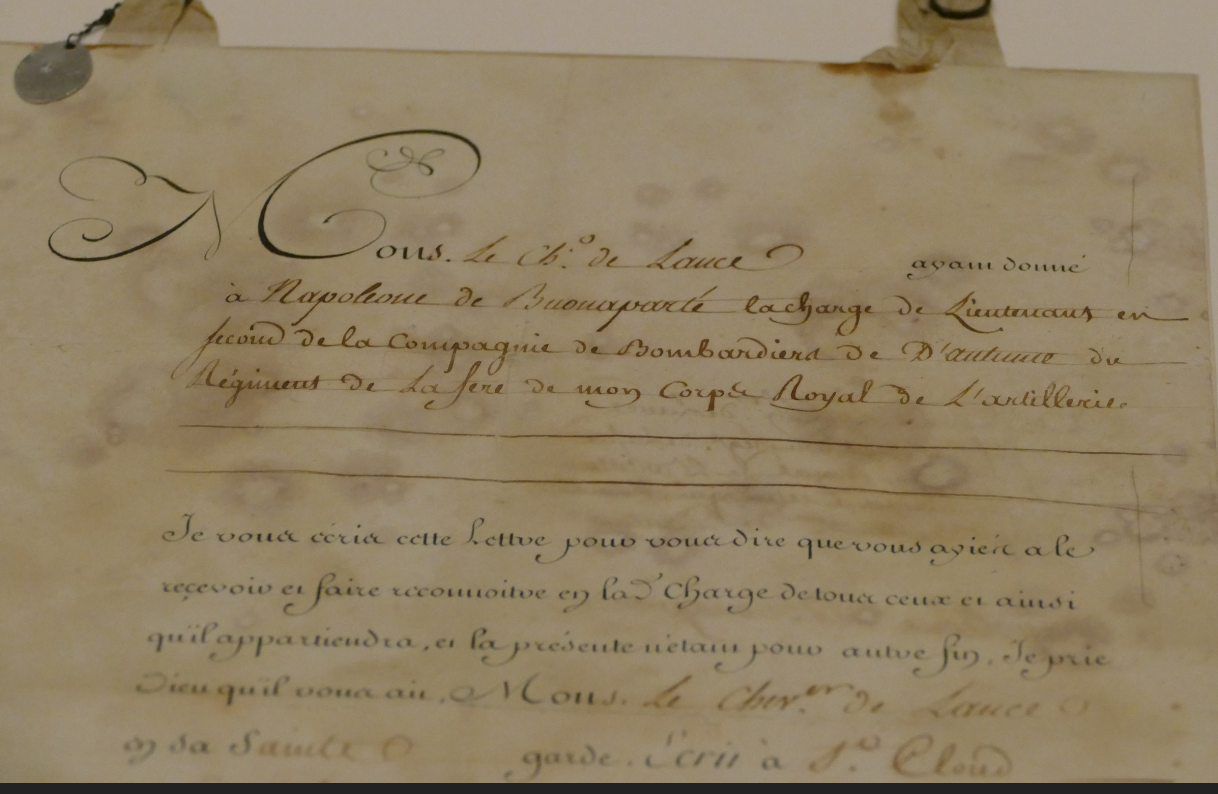 Mons. Le Ch.er de Lance ayant donné
à Napoleone de Buonaparte la charge de Lieutenant en
second de la Compagnie de Bombardiers de D'autume du
Régiment de La fere de mon Corps Royal de L'artillerie.
Je vous écris cette Lettre pour vous dire que vous ayiés a le
recevoir et faire reconnoitre en lad. Charge de tous ceux et ainsi
qu'il appartiendra, et la présente n'étant pour autre fin, Je prie
Dieu qu'il vous ait, Mons. le Chev.er de Lance
en sa Sainte garde. Écrit à S.t Cloud